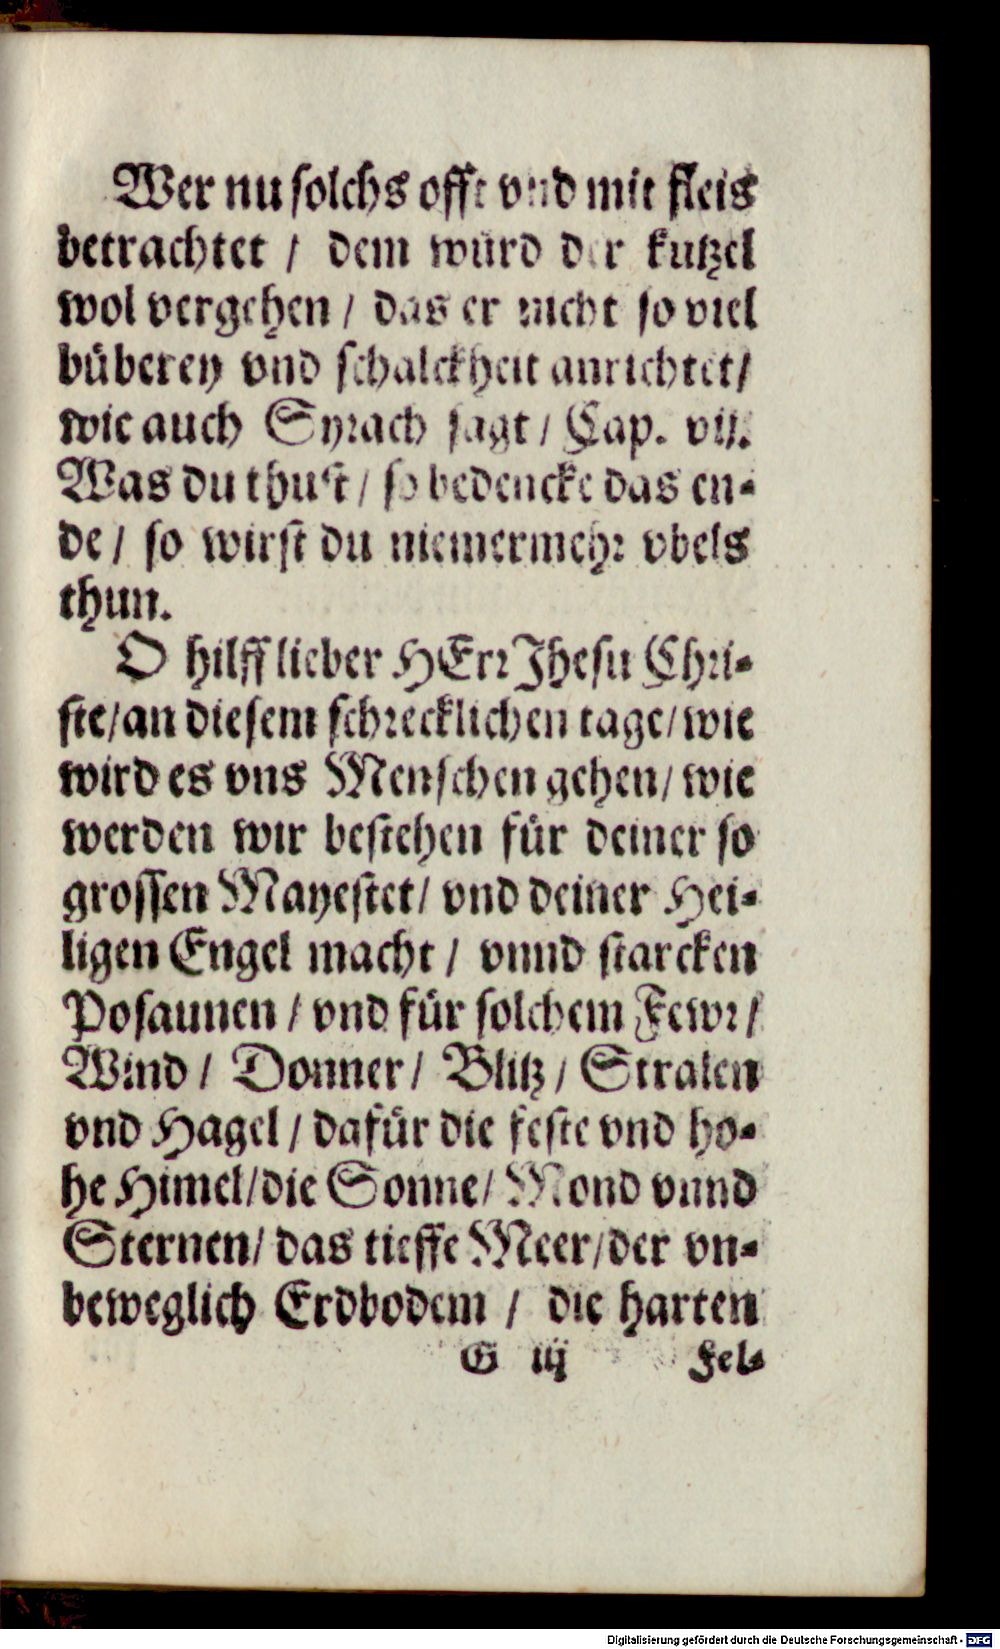 Wer nu solchs offt vnd mit fleis
betrachtet / dem würd der kutzel
wol vergehen / das er nicht so viel
büberey vnd schalckheit anrichtet /
wie auch Syrach sagt / Cap. vij.
Was du thust / so bedencke das en-
de / so wirst du niemermehr vbels
thun.
O hilff lieber HErr Jhesu Chri-
ste / an diesem schrecklichen tage / wie
wird es vns Menschen gehen / wie
werden wir bestehen für deiner so
grossen Mayestet / vnd deiner Hei-
ligen Engel macht / vnnd starcken
Posaunen / vnd für solchem Fewr /
Wind / Donner / Blitz / Stralen
vnd Hagel / dafür die feste vnd ho-
he Himel / die Sonne / Mond vnnd
Sternen / das tieffe Meer / der vn-
beweglich Erdbodem / die harten
G iij Fel-
Digitalisierung gefördert durch die Deutsche Forschungsgemeinschaft - DFG